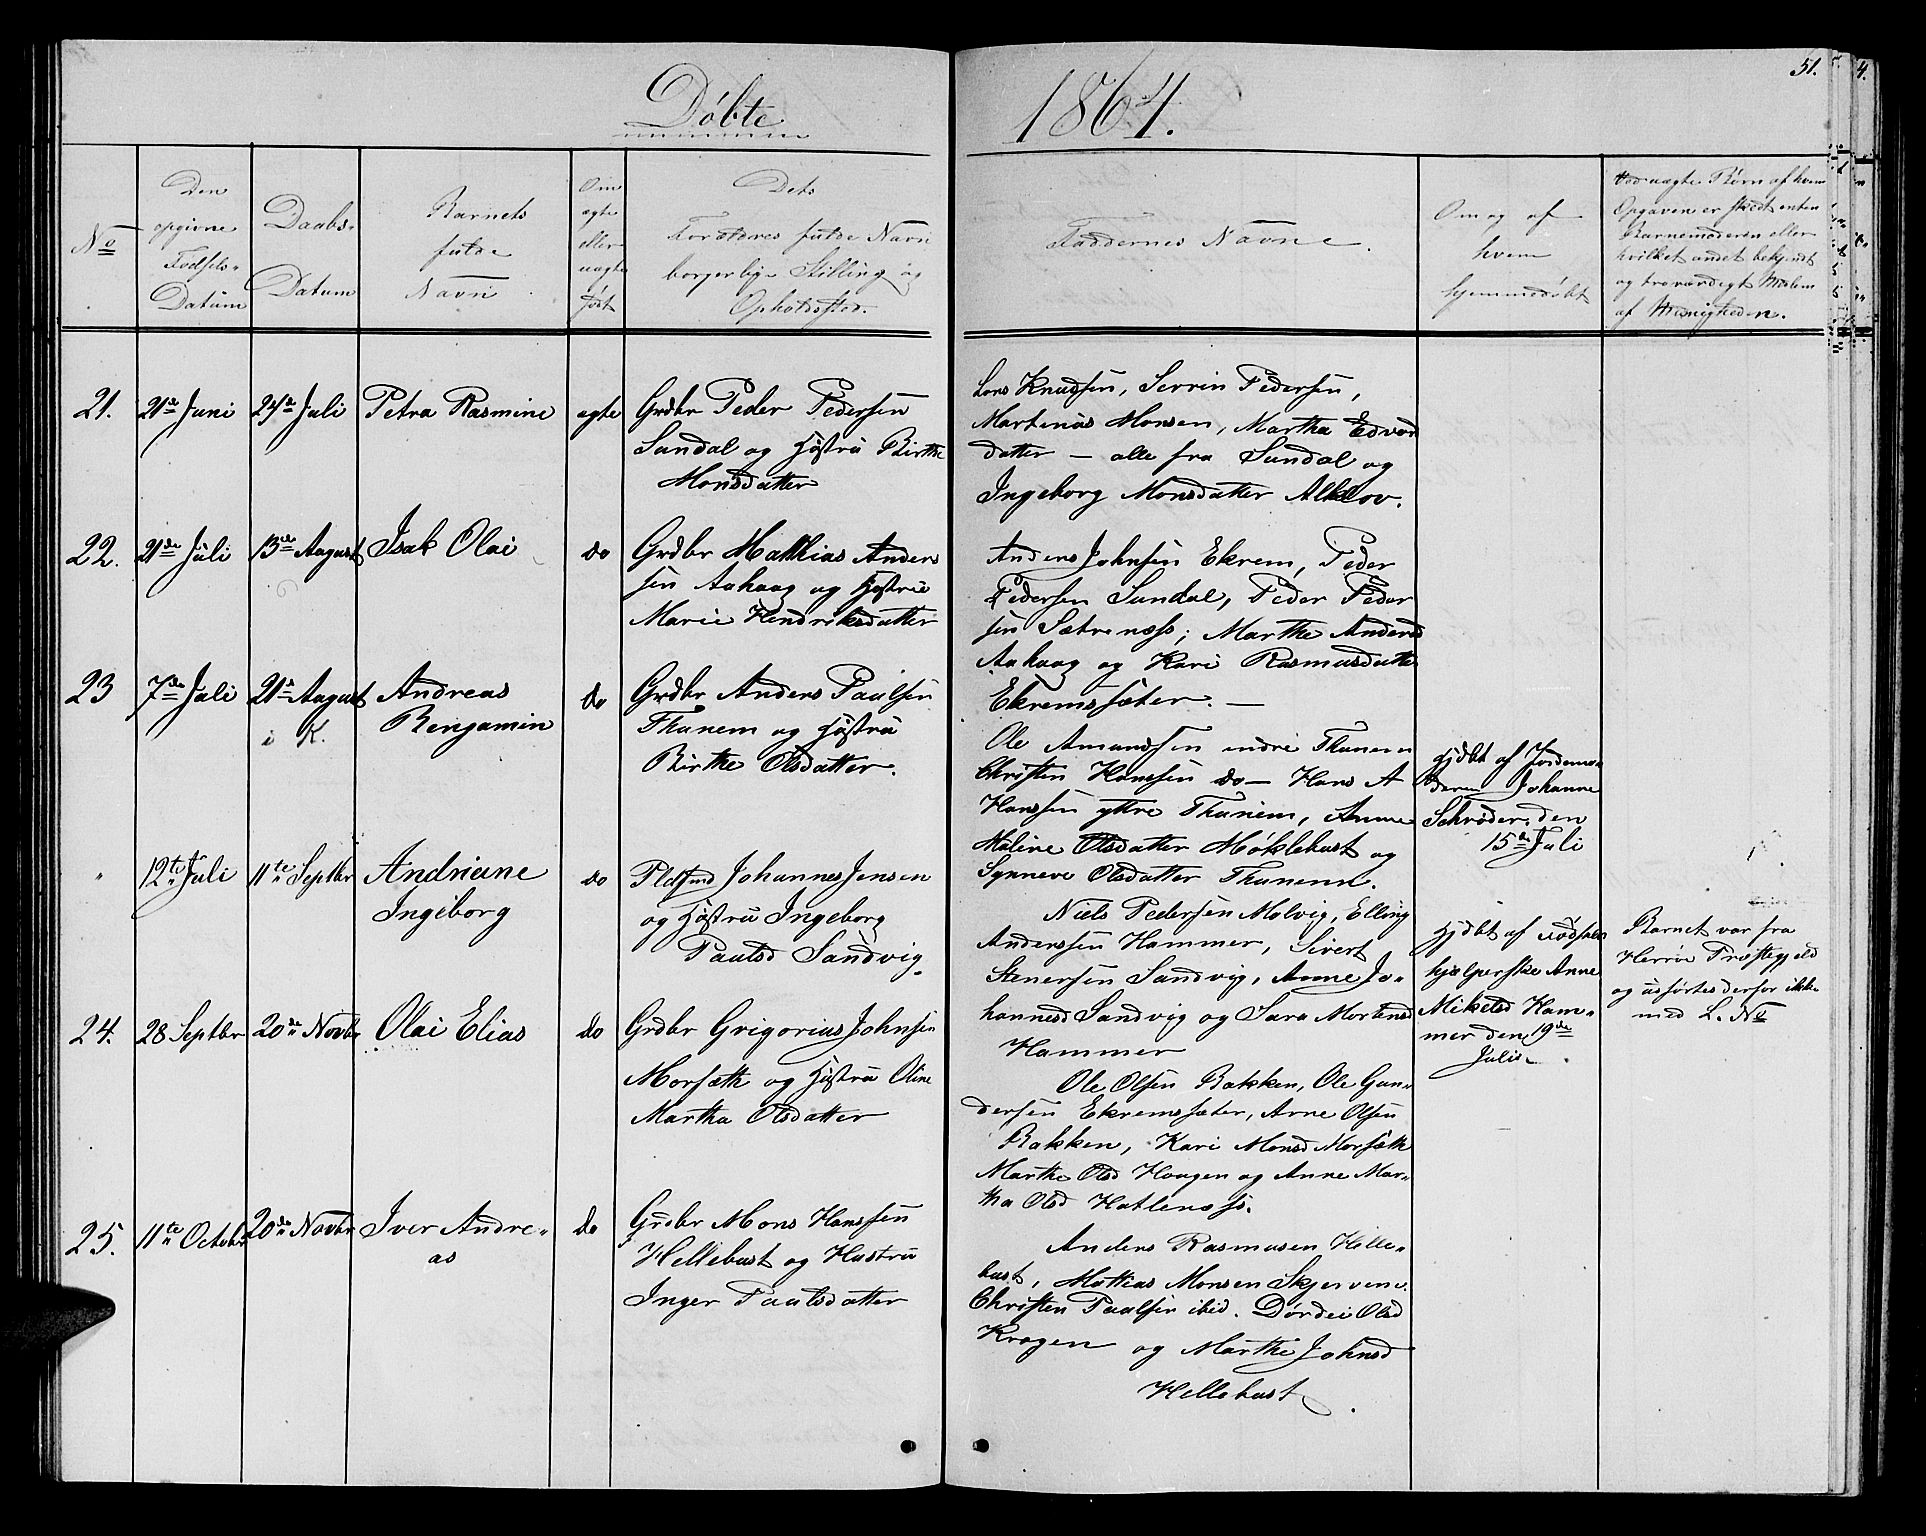 Døbte
1864.
51.
No
Den
opgivne
Fødsels-
Datum
Daabs-
Datum
Barnets
fulde
Navn
Om
ægte
eller
uægte
født
Dets
Forældres fulde Navn
borgerlige Stilling og
Opholdssted.
Faddernes Navne.
Om og af
hvem
hjemmedøbt
Ved uægte Børn af hvem
Opgaven er skedt enten
Barnemoderen eller
hvilket andet bekjendt
og troværdigt Medlem
af Menigheden.
21.
21de Juni
24de Juli
Petra Rasmine
ægte
Grdbr Peder Pedersen
Sundal og Hustru Birthe
Monsdatter
Lars Knudsen, Serrin Pedersen,
Martinus Monsen, Martha Edvard
datter — alle fra Sundal og
Ingeborg Monsdatter Alkov.
22.
21de Juli
13de August
Isak Olai
do
Grdbr Mathias Anders
sen Aahaag og Hustru
Marie Hendriksdatter
Anders Johnsen Ekrem, Peder
Pedersen Sundal, Peder Peder
sen Sætrenæss; Marthe Andersd
Aahaag og Kari Rasmusdatter
Ekremsæter. —
23
7de Juli
21de August
i K.
Andreas
Bengamin
do
Grdbr Anders Paulsen
Thunem og Hustru
Birthe Olsdatter.
Ole Amundsen indre Thunem
Christen Hanssen do — Hans A
Hanssen ytre Thunem, Anne
Maline Olsdatter Møklebust og
Synneve Olsdatter Thunem.
Hjdbt af Jordemo-
deren Johanne
Schrøder den
15de Juli
"
12te Juli
11te Septbr
Andriane
Ingeborg
do
Pldsmd Johannes Jensen
og Hustru Ingeborg
Paulsd Sandvig
Niels Pedersen Molvig, Elling
Anderssen Hammer, Sivert
Stenersen Sandvig, Anne Jo-
hannesd Sandvig og Sara Mortensd
Hammer
Hjdbt af Fødsels
hjælperske Anne
Mikelsd Ham-
mer den 19de
Juli.
Barnet var fra
Herrøe Præstegjeld
og udførtes derfor ikke
med L. No
24.
28 Septbr
20de Novbr
Olai Elias
do
Grdbr Grigorius Johnsen
Morsæth og Hustru Oline
Martha Olsdatter
Ole Olsen Bakken, Ole Gun-
dersen Ekremsæter, Arne Olsen
Bakken, Kari Monsd Morsæth
Marthe Olsd Haugen og Anne Mar-
tha Olsd Hatlenæss.
25.
11te Octobr
20de Novbr
Iver Andre-
as
do
Grdbr Mons Hanssen
Hellebust og Hustru
Inger Paulsdatter
Anders Rasmusen Helle-
bust, Mattias Monsen Skjervene.
Christen Paulsen ibid. Dørdei Olsd
Kragen og Marthe Johnsd
Hellebust.